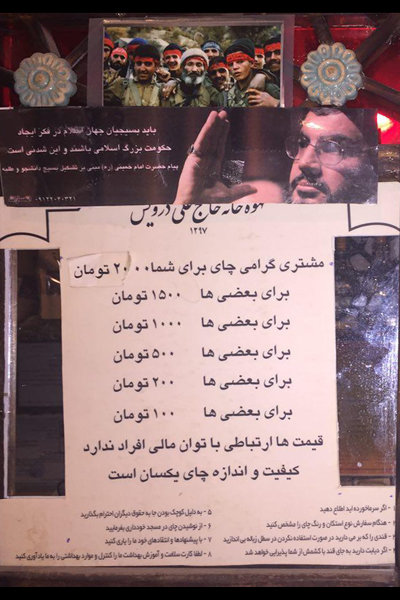 باید بسیجیان جهان اسلام در فکر ایجاد
حکومت بزرگ اسلامی باشند و این شدنی است
پیام حضرت امام خمینی (ره) مبنی بر تشکیل بسیج دانشجو و طلبه
قهوه خانه حاج علی درویش
۱۲۹۷
مشتری گرامی چای برای شما ۲۰۰۰ تومان
برای بعضی ها ۱۵۰۰ تومان
برای بعضی ها ۱۰۰۰ تومان
برای بعضی ها ۵۰۰ تومان
برای بعضی ها ۲۰۰ تومان
برای بعضی ها ۱۰۰ تومان
قیمت ها ارتباطی با توان مالی افراد ندارد
کیفیت و اندازه چای یکسان است
۱ - اگر سرماخورده اید اطلاع دهید
۲ - هنگام سفارش نوع استکان و رنگ چای را مشخص کنید
۳ - قندی را که بر می دارید در صورت استفاده نکردن در سطل زباله بی اندازید
۴ - اگر دیابت دارید به جای قند با کشمش از شما پذیرایی خواهد شد
۵ - به دلیل کوچک بودن جا به حقوق دیگران احترام بگذارید
۶ - از نوشیدن چای در مسجد خودداری بفرمایید
۷ - با پیشنهادها و انتقادهای خود ما را یاری کنید
۸ - لطفا کارت سلامت و آموزش بهداشت ما را کنترل و موارد بهداشتی را به ما یادآوری کنید